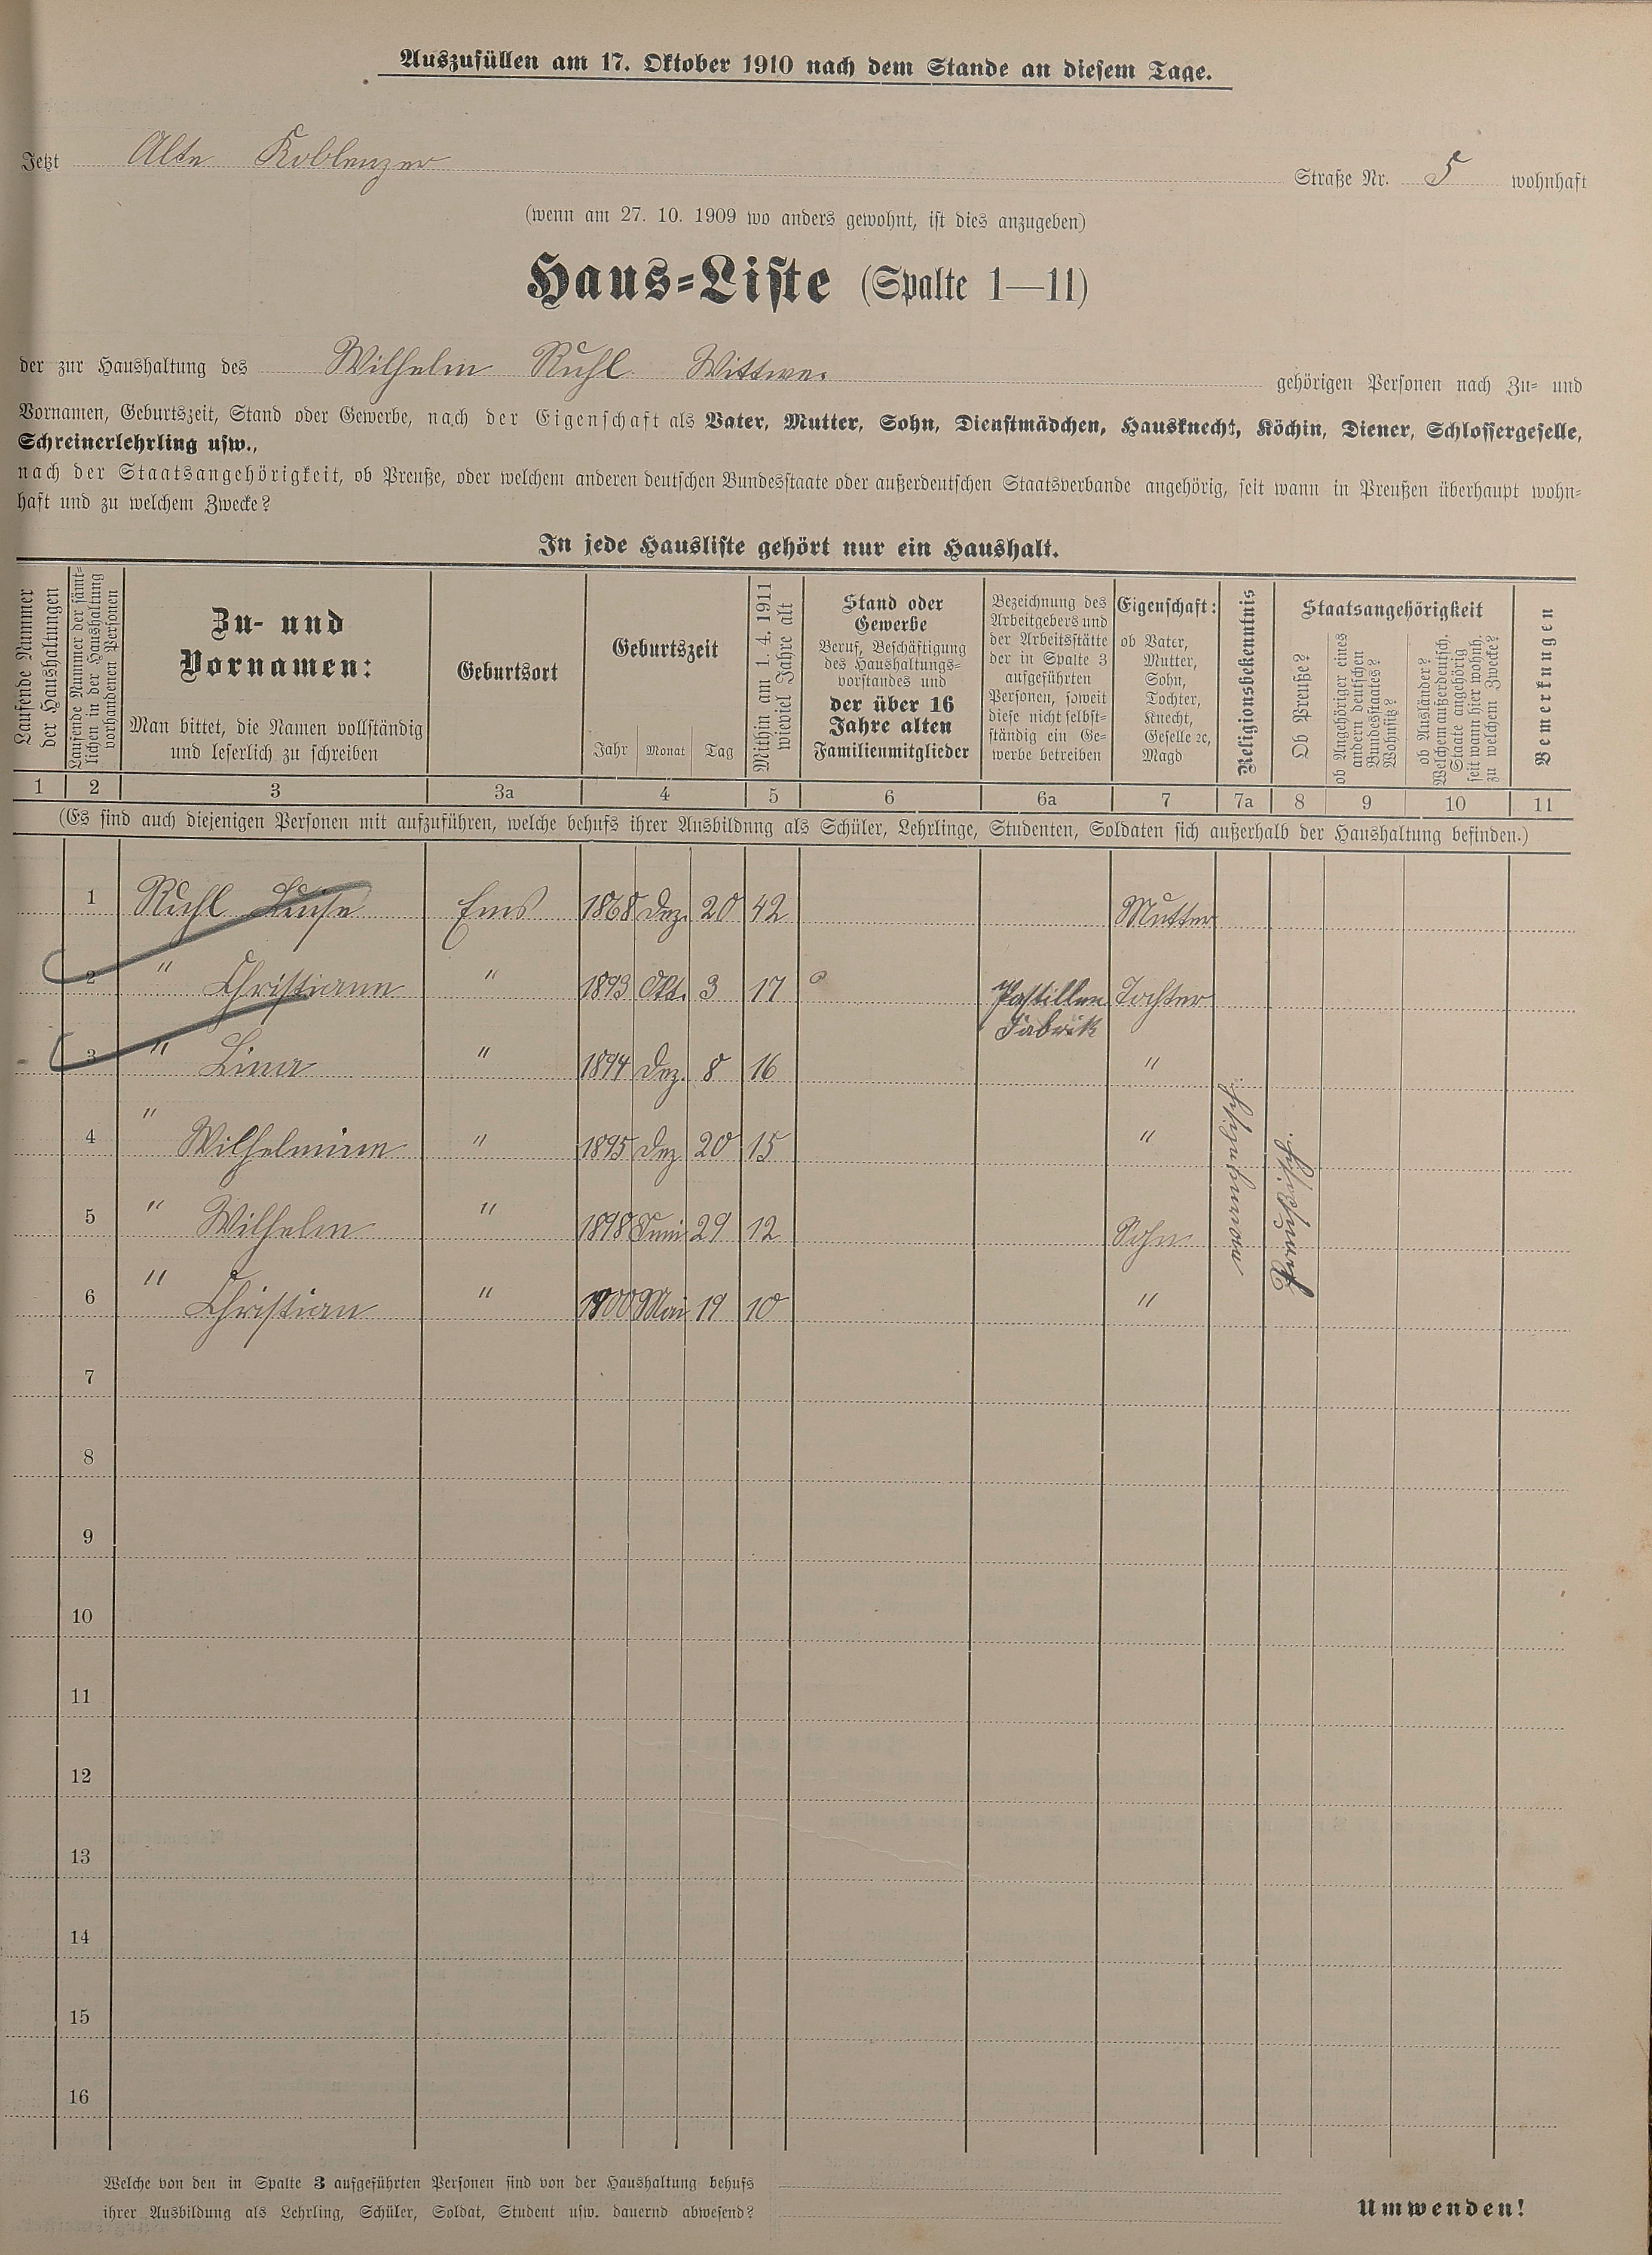 Auszufüllen am 17. Oktober 1910 nach dem Stande an diesem Tage.
Jetzt Alte Koblenzer Straße Nr. 5 wohnhaft
(wenn am 27. 10. 1909 wo anders gewohnt, ist dies anzugeben)
Haus-Liste (Spalte 1—11)
der zur Haushaltung des Wilhelm Ruhl Wittwe. gehörigen Personen nach Zu- und
Vornamen, Geburtszeit, Stand oder Gewerbe, nach der Eigenschaft als Vater, Mutter, Sohn, Dienstmädchen, Hausknecht, Köchin, Diener, Schlossergeselle,
Schreinerlehrling usw.,
nach der Staatsangehörigkeit, ob Preuße, oder welchem anderen deutschen Bundesstaate oder außerdeutschen Staatsverbande angehörig, seit wann in Preußen überhaupt wohn-
haft und zu welchem Zwecke?
In jede Hausliste gehört nur ein Haushalt.
Laufende Nummer
der Haushaltungen
Laufende Nummer der sämt-
lichen in der Haushaltung
vorhandenen Personen
Zu- und
Vornamen:
Man bittet, die Namen vollständig
und leserlich zu schreiben
Geburtsort
Geburtszeit
Jahr Monat Tag
Mithin am 1. 4. 1911
wieviel Jahre alt
Stand oder
Gewerbe
Beruf, Beschäftigung
des Haushaltungs-
vorstandes und
der über 16
Jahre alten
Familienmitglieder
Bezeichnung des
Arbeitgebers und
der Arbeitsstätte
der in Spalte 3
aufgeführten
Personen, soweit
diese nicht selbst-
ständig ein Ge-
werbe betreiben
Eigenschaft:
ob Vater,
Mutter,
Sohn,
Tochter,
Knecht,
Geselle ꝛc,
Magd
Religionsbekenntnis
Staatsangehörigkeit
Ob Preuße?
ob Angehöriger eines
andern deutschen
Bundesstaates?
Wohnsitz?
ob Ausländer?
Welchem außerdeutsch.
Staate angehörig
seit wann hier wohnh.
zu welchem Zwecke?
Bemerkungen
1 2 3 3a 4 5 6 6a 7 7a 8 9 10 11
(Es sind auch diejenigen Personen mit aufzuführen, welche behufs ihrer Ausbildung als Schüler, Lehrlinge, Studenten, Soldaten sich außerhalb der Haushaltung befinden.)
1 Ruhl Luise Ems 1868 Dez. 20 42 Mutter
2 " Christiane " 1893 Okt. 3 17 Pastillen Tochter
Fabrik
3 " Lina " 1894 Dez. 8 16 "
4 " Wilhelmine " 1895 Dez 20 15 "
5 " Wilhelm " 1898 Juni 29 12 Sohn
6 " Christian " 1900 Mai 19 10 "
evangelisch.
7
8
9
10
11
12
13
14
15
16
Welche von den in Spalte 3 aufgeführten Personen sind von der Haushaltung behufs
ihrer Ausbildung als Lehrling, Schüler, Soldat, Student usw. dauernd abwesend?
Umwenden!